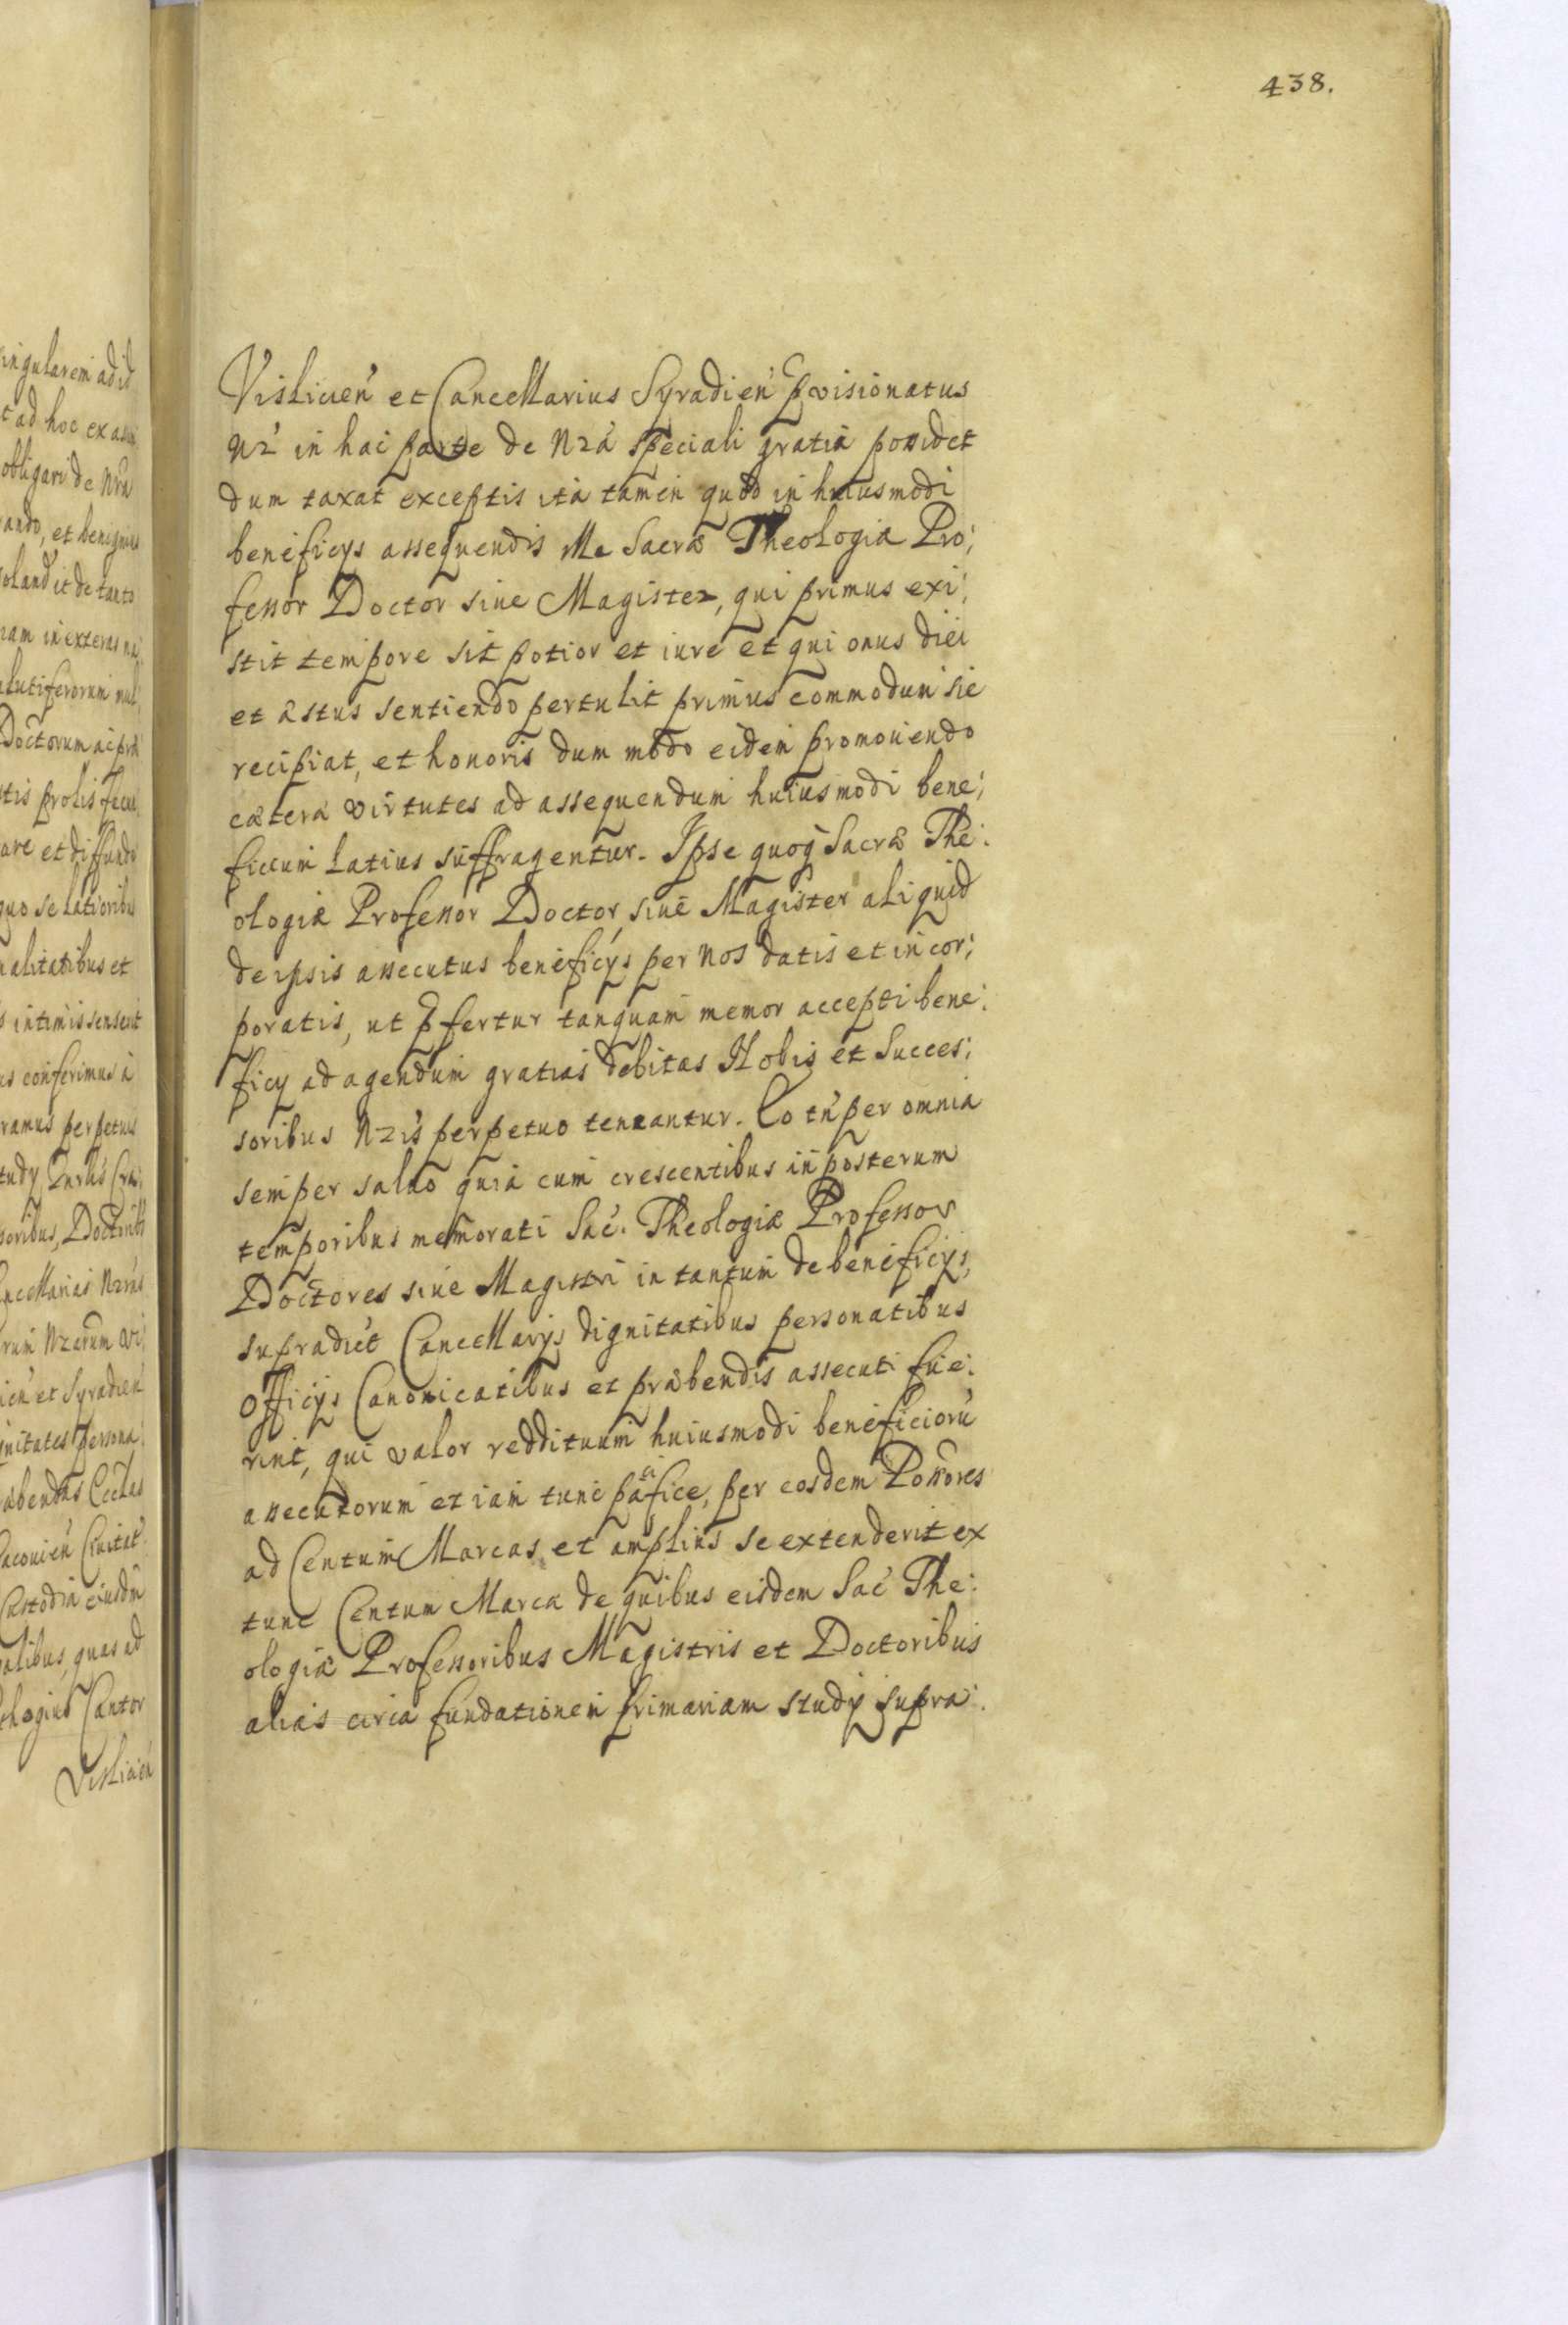 438.
Visliciẽn et Cancellarius Syradiẽn Pvisionatus
Nr̃ in hac parte de Nr̃a speciali gratia possidet
dum taxat exceptis ita tamen quod in huiusmodi
beneficÿs assequendis Ille Sacræ Theologiæ Pro:
fessor Doctor siue Magister, qui primus exi:
stit tempore sit potior et iure et qui onus diei
et æstus sentiendo pertulit primus commodum sic
recipiat, et honoris dum modo eidem promouendo
cætera virtutes ad assequendum huiusmodi bene:
ficium latius suffragentur. Ipse quoq̃ Sacræ The:
ologiæ Professor Doctor, siue Magister aliquid
de ipsis assecutus beneficÿs per nos datis et incor:
poratis, ut p̃fertur tanquam memor accepti bene:
ficÿ ad agendum gratias debitas Nobis et Succes:
soribus Nr̃is perpetuo teneantur. Eo tñ per omnia
semper saluo quia cum crescentibus in posterum
temporibus memorati Sac̃. Theologiæ Professor
Doctores siue Magistri in tantum de beneficÿs,
supradict̃ Cancellarÿs dignitatibus personatibus
officÿs Canonicatibus et præbendis assecuti fue:
rint, qui valor reddituum huiusmodi beneficiorũ
assecutorum etiam tunc pacifice, per eosdem Possores
ad Centum Marcas et amplius se extenderit ex
tunc Centum Marca de quibus eisdem Sac̃ The:
ologiæ Professoribus Magistris et Doctoribus
alias circa fundationem primariam studÿ supra:
singularem ad id
t ad hoc ex
obligari de Nr̃a
et benignius
de tanto
in exteras na:
Doctorum ac præ
tis prolis
are et diffundi
quo se latioribus
alitatibus et
intimis senserit
us conferimus a
ramus perpetuis
soribus, Doctoribus
ncellarias Nr̃as
rum Nr̃arum Vi:
et Syradieñ
gnitates persona:
æbendas Ecclas
Ciuitat
Custodia eiusdm
quas ad
Cantor
Visliciẽn